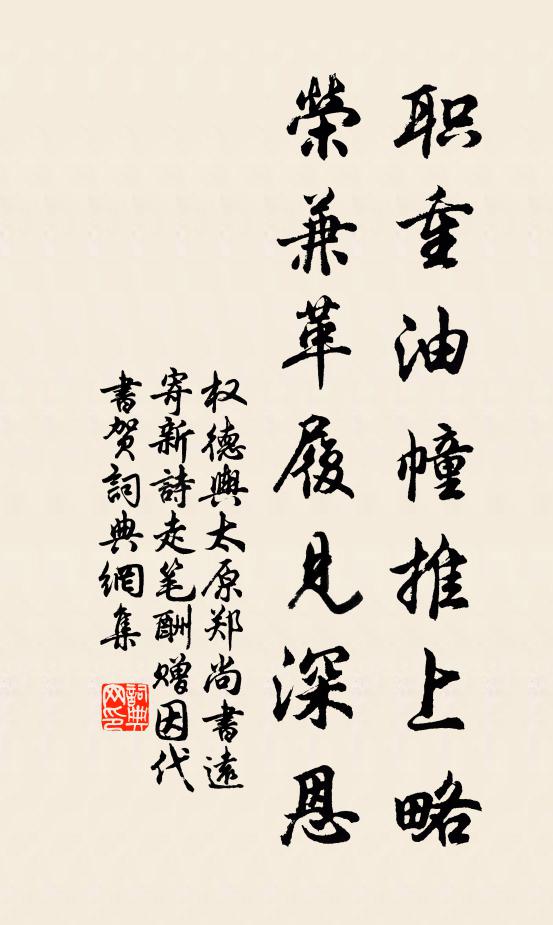 职重油幢推上略
荣兼革履见深恩
权德舆太原郑尚书远
寄新詩走笔酬赠因代
書贺詞典網集
詞典
网印